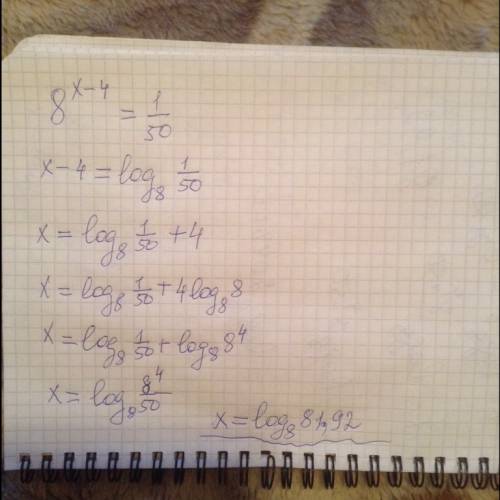 8^{x-4} = \frac{1}{50}
x-4 = log_8 \frac{1}{50}
x = log_8 \frac{1}{50} + 4
x = log_8 \frac{1}{50} + 4 log_8 8
x = log_8 \frac{1}{50} + log_8 8^4
x = log_8 \frac{8^4}{50}
x = log_8 81,92